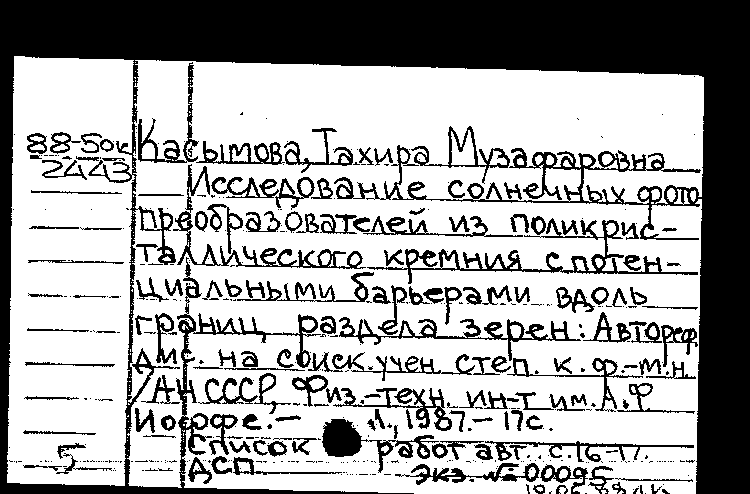 88-5ок Касымова, Тахира Музафаровна
2443
Исследование солнечных фото
преобразователей из поликрис-
таллического кремния с потен-
циальными барьерами вдоль
границ раздела зерен: Автореф.
дис. на соиск. учен. степ. к. ф.-м.н.
/АН СССР, Физ.-техн. ин-т им. А.Ф.
Иоффе. - Л., 1987. - 17с.
Список работ авт.: с.16-17.
5 ДСП Экз. № 00095